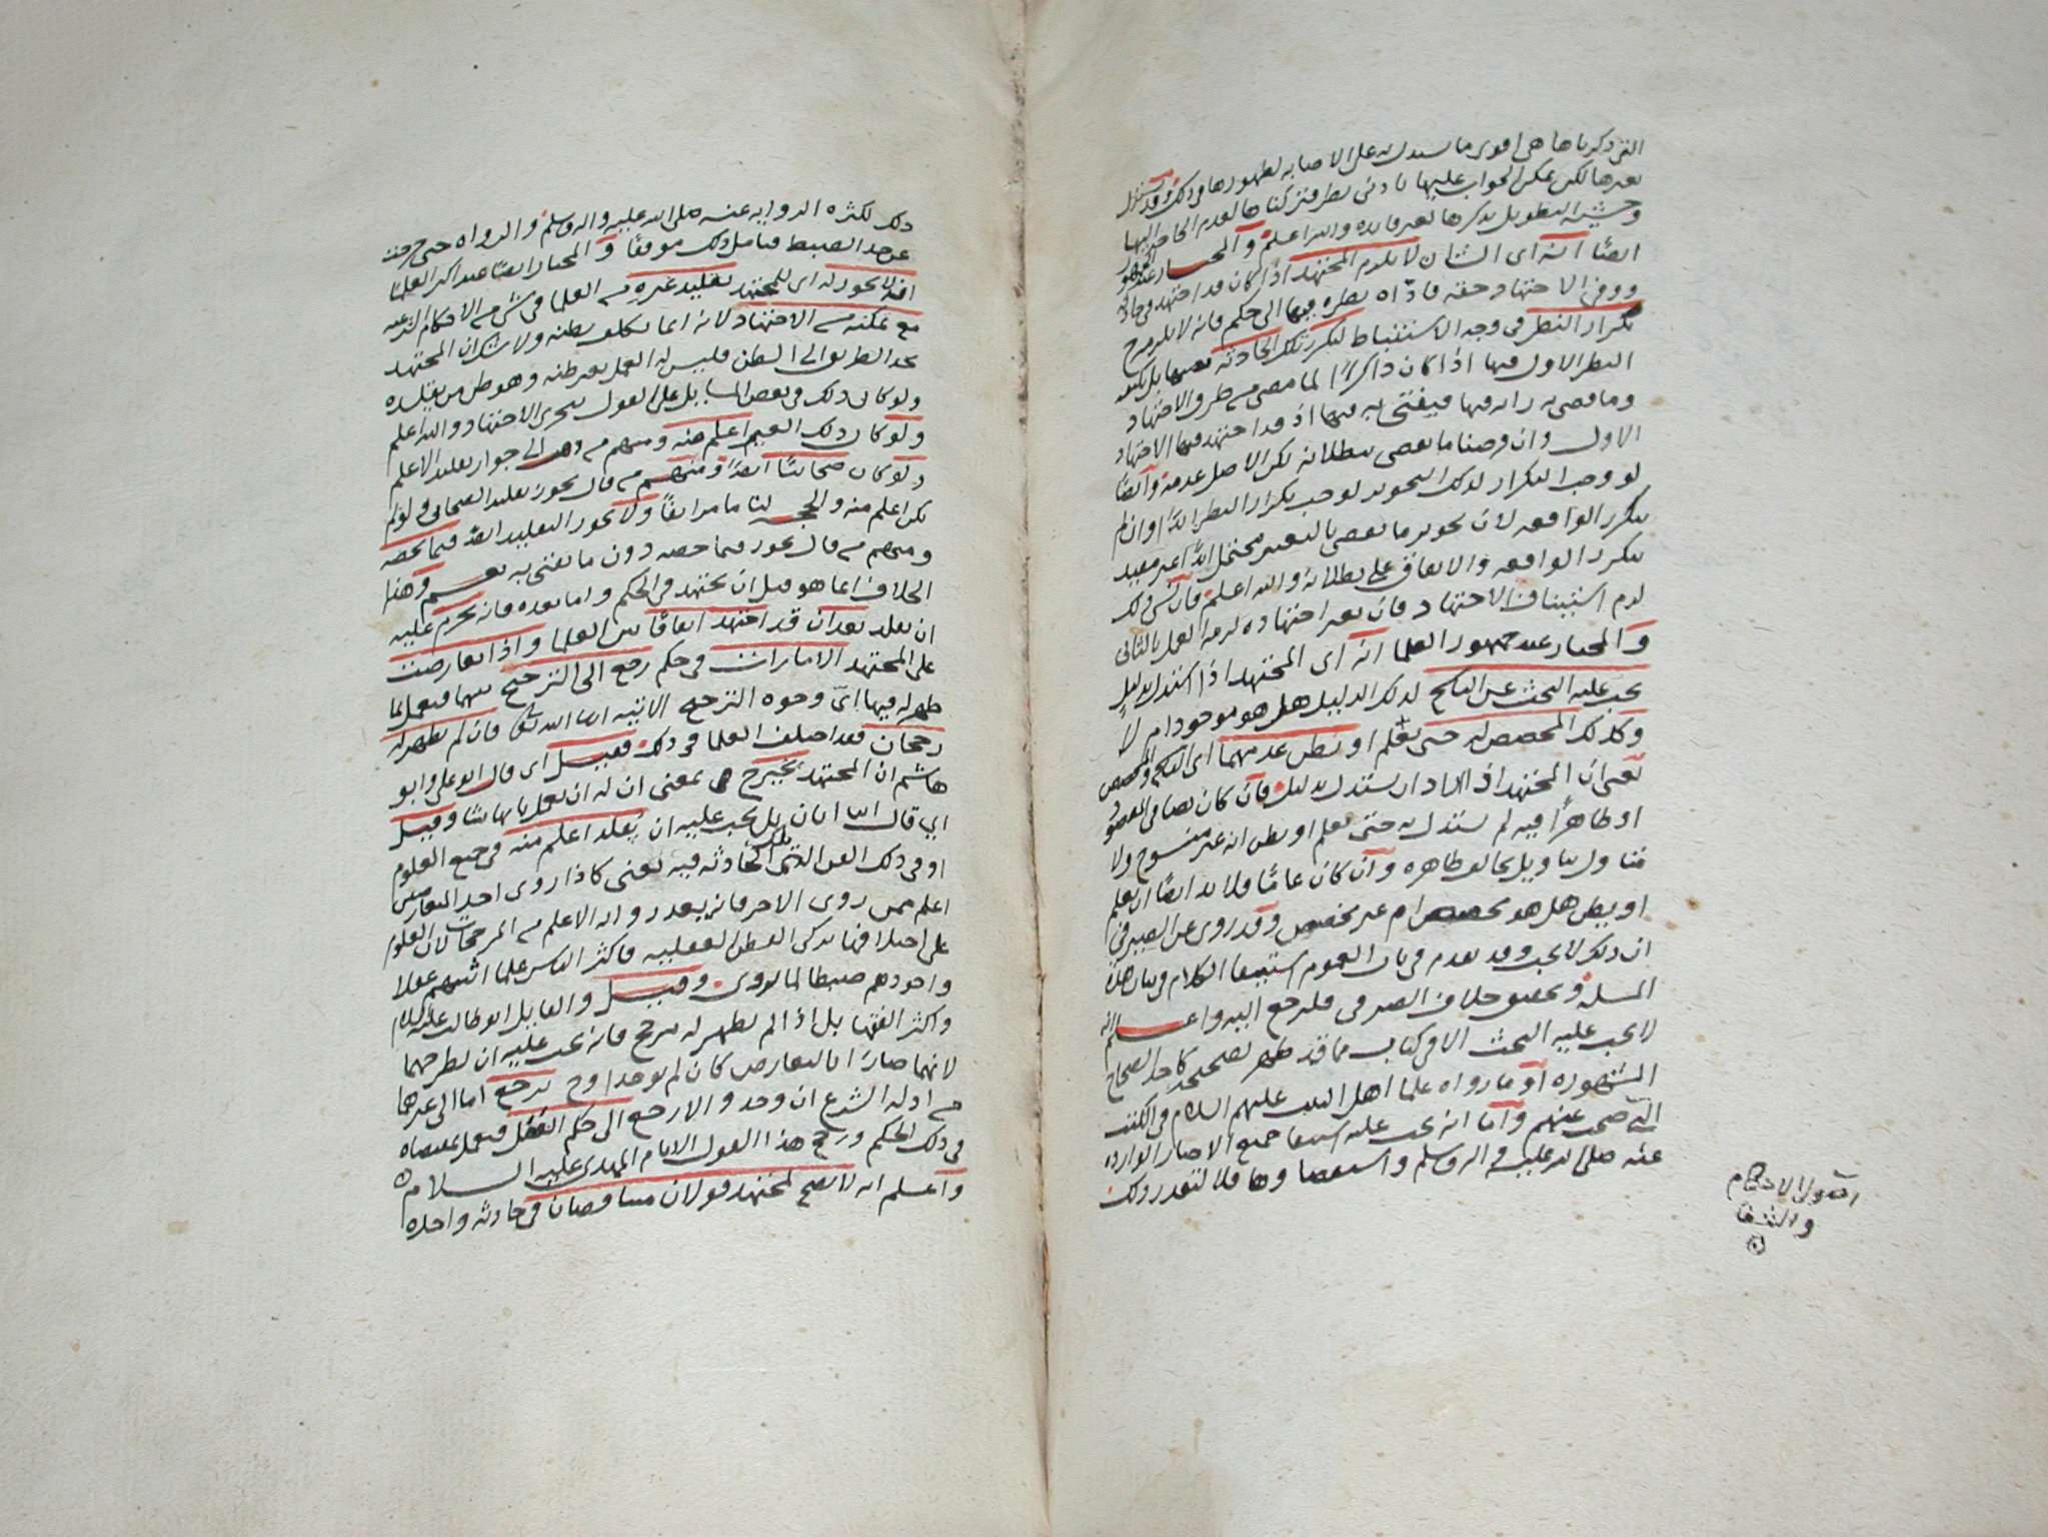 التي ذكرناها هي اقوى ما يستدل به على الاصابه لظهورها وذلك وقد يستدل
بغيرها لكن يمكن الجواب عليها بادنى نظر فتركناها لعدم الحاجة اليها
وخشية التطويل بذكرها لغير فايده والله اعلم والمختار عند الجمهور
ايضًا انه اي الشان لا يلزم المجتهد اذا كان قد اجتهد في حادثه
ووفى الاجتهاد حقه فادّاه نظره فيها الى حكم فانه لا يلزمه ح
تكرار النظر في وجه الاستنباط لتكرر تلك الحادثه بعينها بل يكفيه
النظر الاول فيها اذا كان ذاكرًا لما مضى من طرق الاجتهاد
وما قضى به رايه فيها فيفتي به فيها اذ قد اجتهد فيها الاجتهاد
الاول وان فرضنا ما يقضي ببطلانه لكن الاصل عدمه وايضًا
لو وجب التكرار لذلك التجويز لوجب تكرار النظر ابدًا وان لم
تتكرر الواقعه لان تجويز ما يقضي بالتغير محتمل ابدًا غير مقيد
بتكرر الواقعه والاتفاق على بطلانه والله اعلم فان نسي ذلك
لزم استيناف الاجتهاد فان تغير اجتهاده لزمه العمل بالثاني
والمختار عند جمهور العلما انه اي المجتهد اذا استدل بدليل
يجب عليه البحث عن الناسخ لذلك الدليل هل هو موجود ام لا
وكذلك المخصص له حتى يعلم او يظن عدمهما اي الناسخ والمخصص
يعني ان المجتهد اذا اراد ان يستدل بدليل فان كان نصا في المقصود
او ظاهرًا فيه لم يستدل به حتى يعلم او يظن انه غير منسوخ ولا
متاول بتاويل يخالف ظاهره وان كان عامًا فلا بد ايضًا ان يعلم
او يظن هل هو مخصص ام غير مخصص وقد روي عن الصيرفي
ان ذلك لا يجب وقد تقدم في باب العموم استيفا الكلام في بيان هذه
المسله وتحقيق خلاف الصيرفي فليرجع اليه واعلم انه
لا يجب عليه البحث الا في كتاب مما قد ظهر تصحيحه كاحد الصحاح
المشهوره او ما رواه علما اهل البيت عليهم السلام في الكتب
التي صحت عنهم واما انه يجب عليه استيفا جميع الاخبار الوارده
عنه صلى الله عليه واله وسلم واستقصاوها فلا لتعذر ذلك
اصول الاحكام
والشفا
ذلك لكثره الروايه عنه صلى الله عليه واله وسلم والرواه حتى خرجت
عن حد الضبط فتامل ذلك موفقًا والمختار ايضًا عند اكثر العلما
انه لا يجوز له اي للمجتهد تقليد غيره من العلما في شي من الاحكام الشرعيه
مع تمكنه من الاجتهاد لانه انما يكلف بظنه ولا شك ان المجتهد
يجد الطريق الى الظن فليس له العمل بغير ظنه وهو ظن من يقلده
ولو كان ذلك في بعض المسايل على القول بتجزي الاجتهاد والله اعلم
ولو كان ذلك الغير اعلم منه ومنهم من ذهب الى جواز تقليد الاعلم
ولو كان صحابيًا ايضًا ومنهم من قال يجوز تقليد الصحابي ولو لم
يكن اعلم منه والحجه لنا ما مر انفًا ولا يجوز التقليد ايضًا فيما يخصه
ومنهم من قال يجوز فيما خصه دون ما يفتي به نعم وهذا
الخلاف انما هو قبل ان يجتهد في الحكم واما بعده فانه يحرم عليه
ان يقلد بعد ان قد اجتهد اتفاقًا بين العلما واذا تعارضت
على المجتهد الامارات في حكم رجع الى الترجيح بينها فيعمل بما
ظهر له فيها اي وجوه الترجيح الاتيه ان شا الله تعالى فان لم يظهر له
رجحان فقد اختلف العلما في ذلك فقيل اي قال ابو علي وابو
هاشم ان المجتهد يخير ح بمعنى ان له ان يعمل بايها شا وقيل
بل يجب عليه ان يقلد اعلم منه في جميع العلوم
او في ذلك الفن الذي تلك الحادثه فيه يعني كاذا روى احد المتعارضين
اعلم ممن روى الاخر فانه يعد رواية الاعلم من المرجحات لان العلوم
على اختلافها تذكي الفطن العقليه فاكثر الناس علما اثبتهم عقلا
واجودهم ضبطا لما يروي وقيل والقايل ابو طالب عليه السلام
واكثر الفقها بل اذا لم يظهر له مرجح فانه يجب عليه ان يطرحهما
لانهما صارا بالتعارض كان لم يوجدا وح يرجع اما الى غيرهما
من ادله الشرع ان وجد والا رجع الى حكم العقل فيعمل بمقتضاه
في ذلك الحكم ورجح هذا القول الامام المهدي عليه السلام
واعلم انه لا يصح لمجتهد قولان متناقضان في حادثه واحده